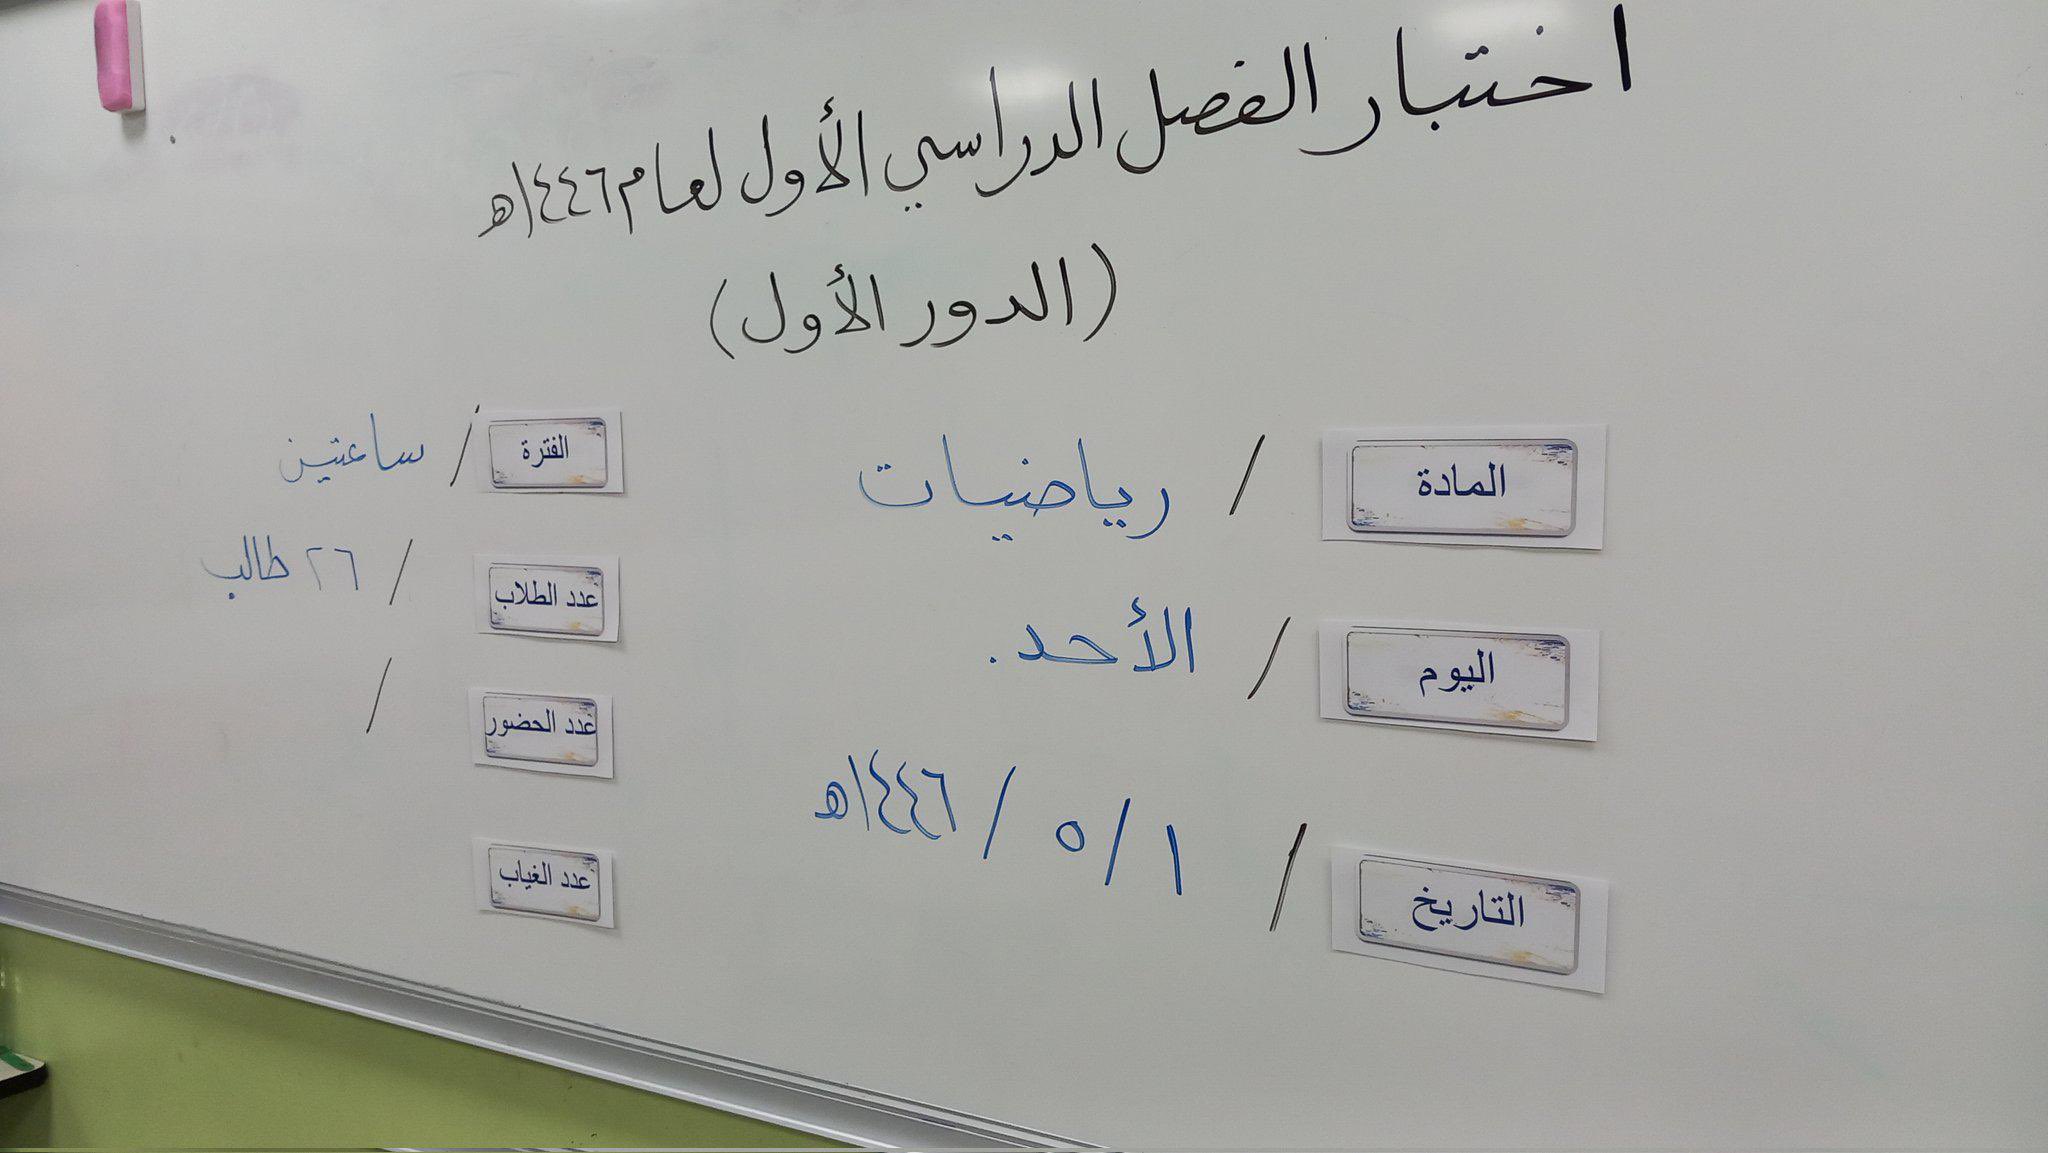 اختبار الفصل الدراسي الأول لعام ١٤٤٦هـ
(الدور الأول)
المادة / رياضيات
اليوم / الأحد.
التاريخ / ١ / ٥ / ١٤٤٦هـ
الفترة / ساعتين
عدد الطلاب / ٢٦ طالب
عدد الحضور /
عدد الغياب